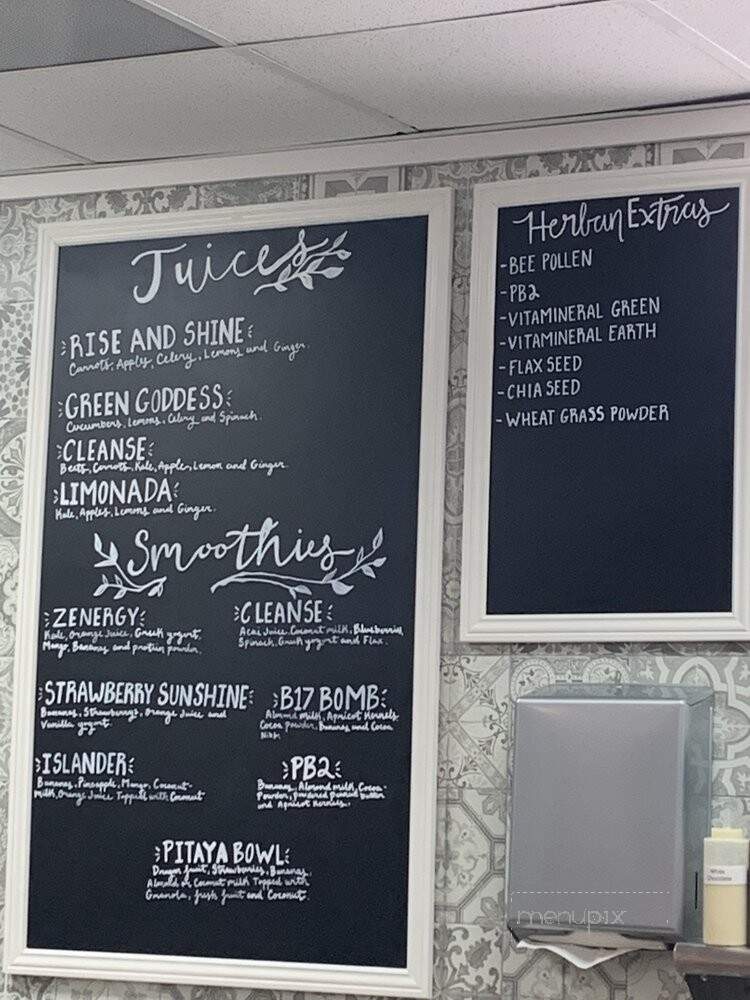 Juices
RISE AND SHINE
Carrots, Apples, Celery, Lemons and Ginger.
GREEN GODDESS
Cucumbers, Lemons, Celery and Spinach.
CLEANSE
Beets, Carrots, Kale, Apple, Lemon and Ginger.
LIMONADA
Kale, Apples, Lemons and Ginger.
Smoothies
ZENERGY
Kale, Orange Juice, Greek yogurt,
Mango, Bananas and protein powder.
CLEANSE
Acai Juice, Coconut milk, Blueberries,
Spinach, Greek yogurt and Flax.
STRAWBERRY SUNSHINE
Bananas, Strawberrys, Orange Juice and
Vanilla yogurt.
B17 BOMB
Almond Milk, Apricot Kernels
Cocoa Powder, Bananas and Cocoa
Nibs.
ISLANDER
Bananas, Pineapple, Mango, Coconut-
milk, Orange Juice Topped with Coconut
PB2
Bananas, Almond milk, Cocoa-
Powder, powdered peanut butter
and Apricot Kernels.
PITAYA BOWL
Dragon fruit, Strawberries, Bananas,
Almond or Coconut milk Topped with
Granola, fresh fruit and Coconut.
Herban Extras
-BEE POLLEN
-PB2
-VITAMINERAL GREEN
-VITAMINERAL EARTH
-FLAX SEED
-CHIA SEED
-WHEAT GRASS POWDER
White
Chocolate
menupix